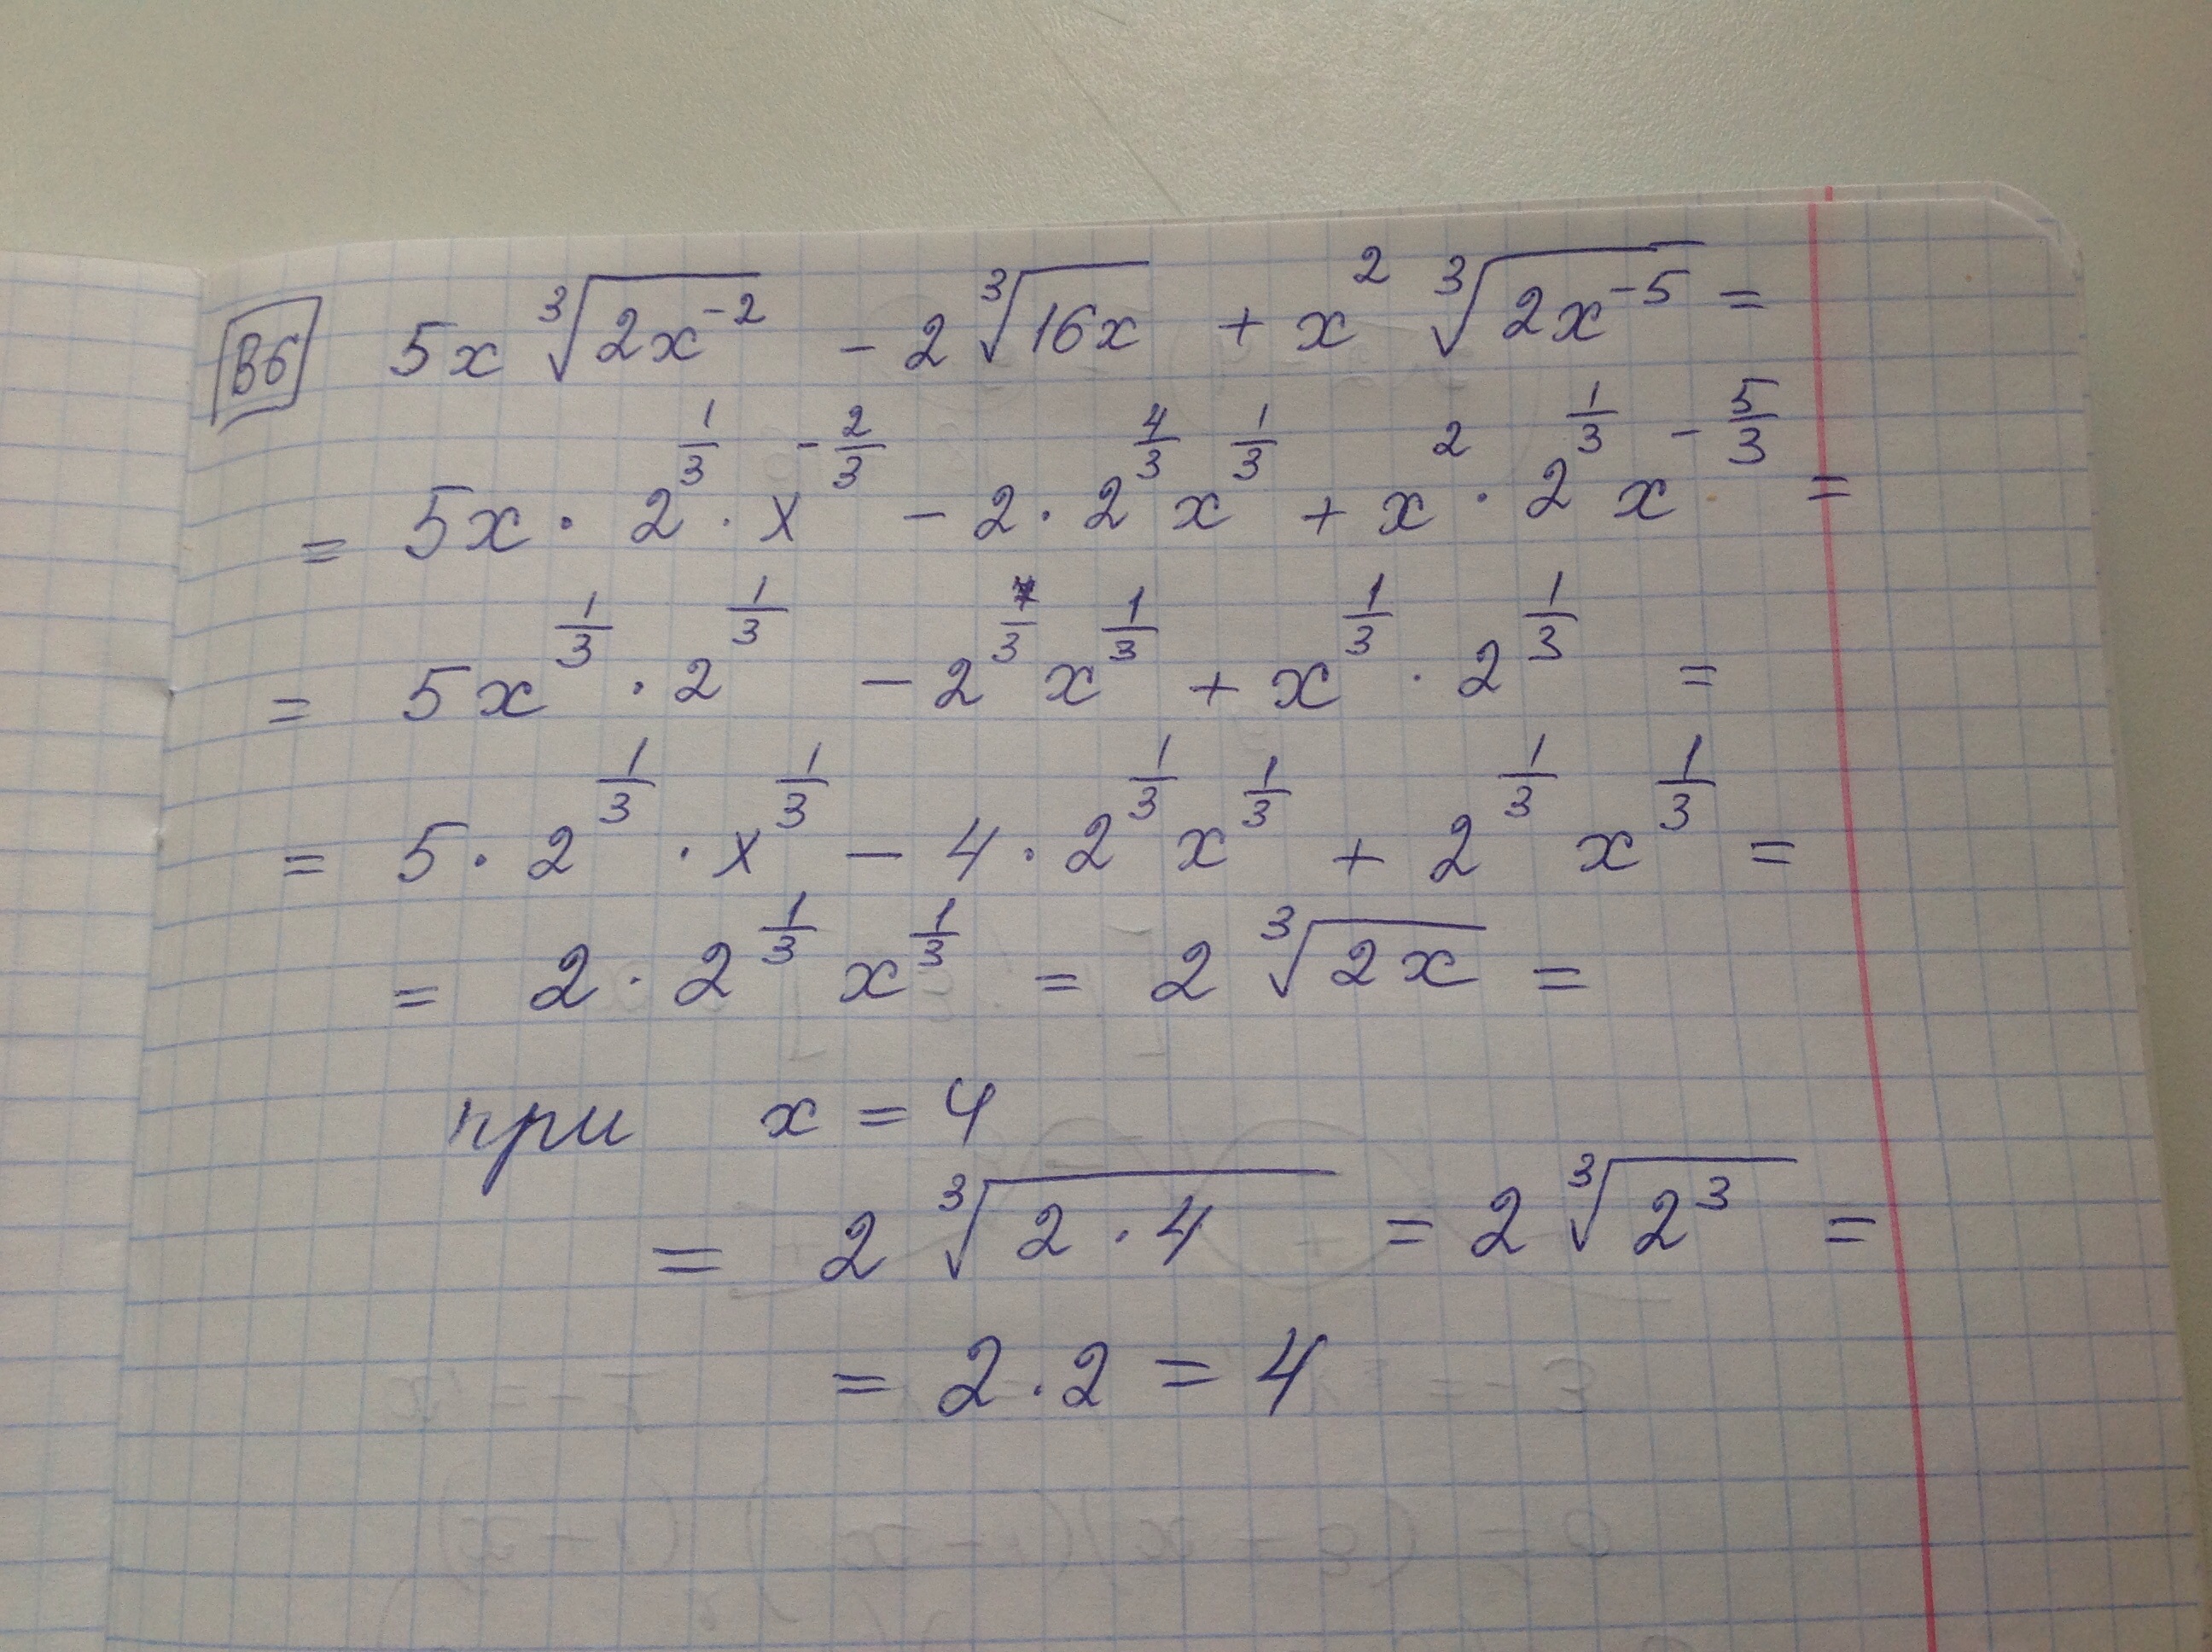 В6 5x ∛(2x⁻²) - 2 ∛(16x) + x² ∛(2x⁻⁵) =
= 5x · 2^(1/3) · x^(-2/3) - 2 · 2^(4/3) x^(1/3) + x² · 2^(1/3) x^(-5/3) =
= 5x^(1/3) · 2^(1/3) - 2^(7/3) x^(1/3) + x^(1/3) · 2^(1/3) =
= 5 · 2^(1/3) · x^(1/3) - 4 · 2^(1/3) x^(1/3) + 2^(1/3) x^(1/3) =
= 2 · 2^(1/3) x^(1/3) = 2 ∛(2x) =
при x = 4
= 2 ∛(2 · 4) = 2 ∛(2³) =
= 2 · 2 = 4